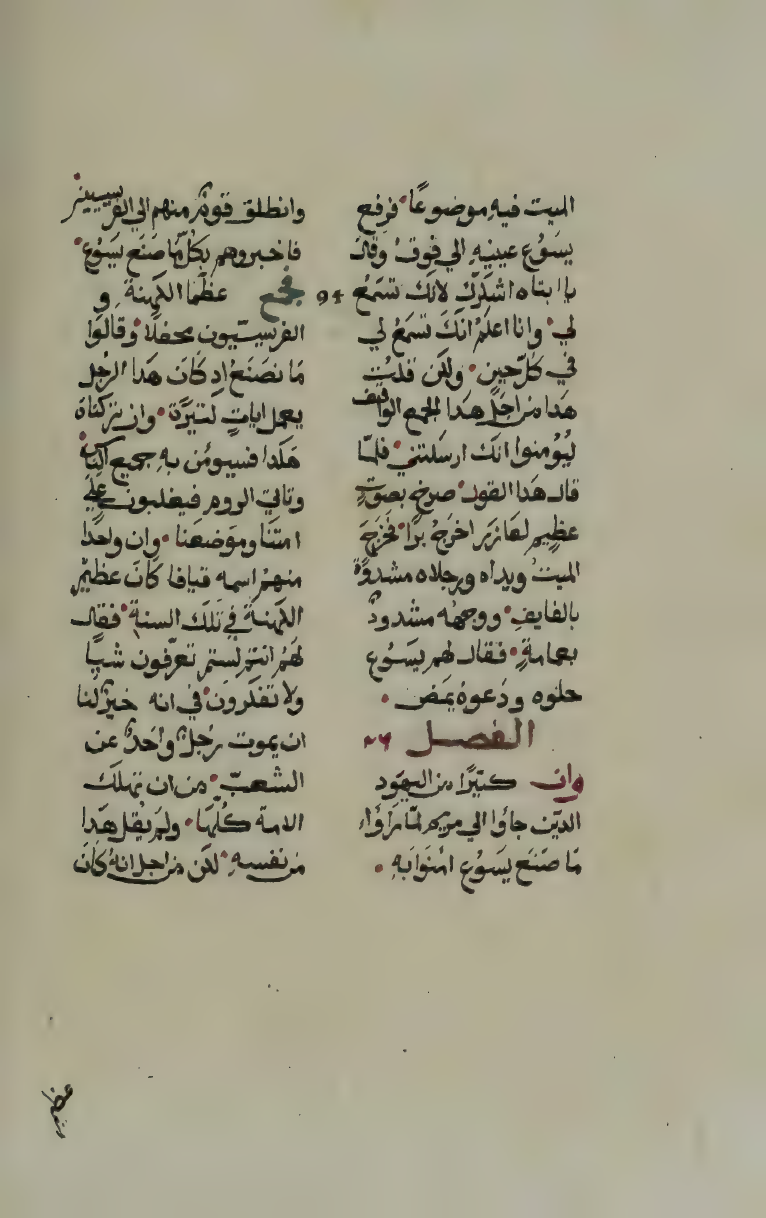 الميت فيه موضوعًا۰ فرفع
يسوع عينيه الي فوق۰ وقال
يا ابتاه اشكرك لانك تسمع
لي۰ وانا اعلم انك تسمع لي
في كل حين۰ ولكن قلت
هدا من اجل هدا الجمع الواقف
ليومنوا انك ارسلتني۰ فلما
قال هدا القول۰ صرخ بصوتٍ
عظيم لعازر اخرج برًا۰ فخرج
الميت ويداه ورجلاه مشدودة
بالفايف۰ ووجهه مشدود
بعمامةٍ۰ فقال لهم يسوع
حلوه ودعوه يمض۰
الفصل ٢٦
وان كتيرًا من اليهود
الدين جاوا الي مريم لما راوا
ما صنع يسوع امنوا به۰
وانطلق قوم منهم الي الفريسيين
فاخبروهم بكل ما صنع يسوع۰
94 فجمع عظما الكهنة و
الفريسيون محفلًا۰ وقالوا
ما نصنع اد كان هدا الرجل
يعمل اياتٍ كتيرة۰ وان تركناه
هكدا فسيومن به جميع الناس
وتاتي الروم فيغلبون علي
امتنا وموضعنا۰ وان واحدًا
منهم اسمه قيافا كان عظيم
الكهنة في تلك السنة۰ فقال
لهم انتم لستم تعرفون شيًا
ولا تفكرون۰ في انه خير لنا
ان يموت رجل واحد عن
الشعب۰ من ان تهلك
الامة كلها۰ ولم يقل هدا
من نفسه۰ لكن من اجل انه كان